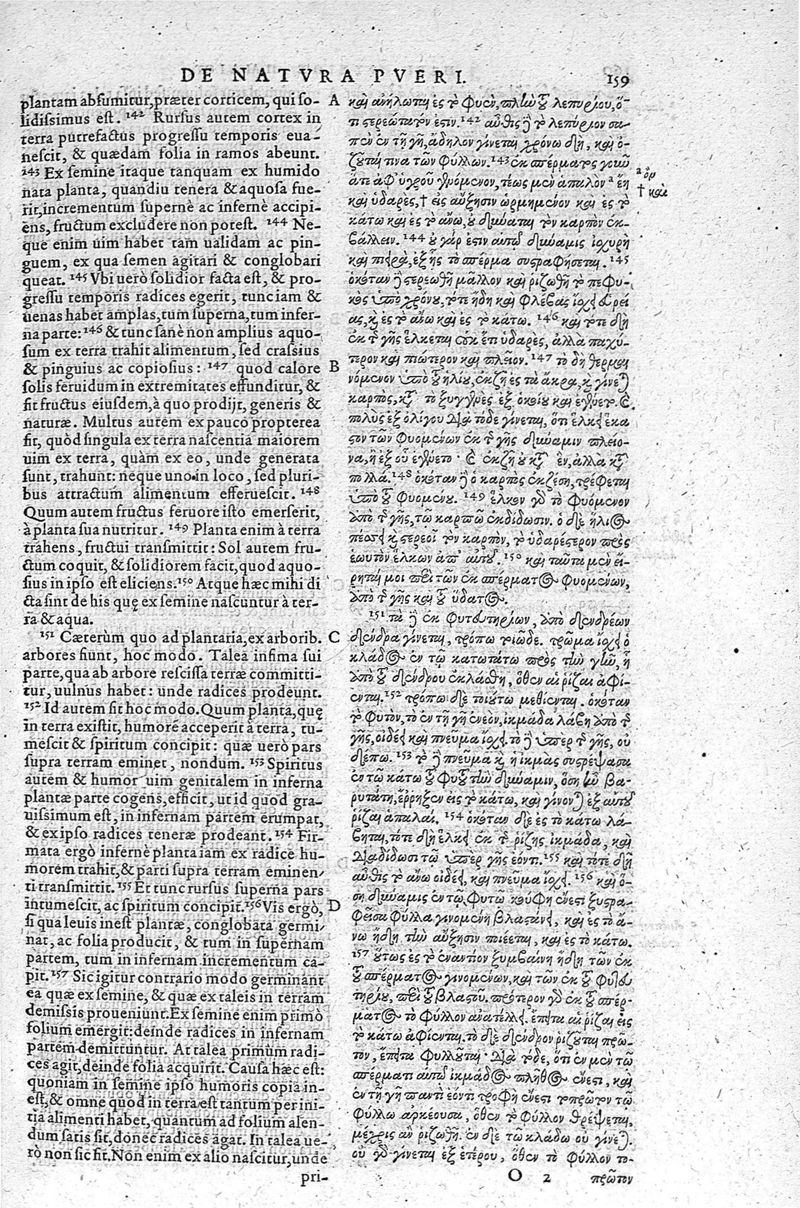 DE NATVRA PVERI. 159
plantam absumitur, præter corticem, qui so-
lidissimus est. 142 Rursus autem cortex in
terra putrefactus progressu temporis eua-
nescit, & quædam folia in ramos abeunt.
143 Ex semine itaque tanquam ex humido
nata planta, quandiu tenera & aquosa fue-
rit, incrementum supernè ac infernè accipi-
ens, fructum excludere non potest. 144 Ne-
que enim uim habet tam ualidam ac pin-
guem, ex qua semen agitari & conglobari
queat. 145 Vbi uerò solidior facta est, & pro-
gressu temporis radices egerit, tunc iam &
uenas habet amplas, tum superna, tum infer-
na parte: 146 & tunc sanè non amplius aquo-
sum ex terra trahit alimentum, sed crassius
& pinguius ac copiosius: 147 quod calore
solis feruidum in extremitates effunditur, &
fit fructus eiusdem, à quo prodijt, generis &
naturæ. Multus autem ex pauco propterea
fit, quòd singula ex terra nascentia maiorem
uim ex terra, quàm ex eo, unde generata
sunt, trahunt: neque uno in loco, sed pluri-
bus attractum alimentum efferuescit. 148
Quum autem fructus feruore isto emerserit,
à planta sua nutritur. 149 Planta enim à terra
trahens, fructui transmittit: Sol autem fru-
ctum coquit, & solidiorem facit, quod aquo-
sius in ipso est eliciens. 150 Atque hæc mihi di
cta sint de his quę ex semine nascuntur à ter-
ra & aqua.
151 Cæterùm quo ad plantaria, ex arborib.
arbores fiunt, hoc modo. Talea infima sui
parte, qua ab arbore rescissa terræ committi-
tur, uulnus habet: unde radices prodeunt.
152 Id autem fit hoc modo. Quum planta, quę
in terra existit, humorē acceperit à terra, tu-
mescit & spiritum concipit: quæ uerò pars
supra terram eminet, nondum. 153 Spiritus
autem & humor uim genitalem in inferna
plantæ parte cogens, efficit, ut id quod gra-
uissimum est, in infernam partem erumpat,
& ex ipso radices teneræ prodeant. 154 Fir-
mata ergò infernè planta iam ex radice hu-
morem trahit, & parti supra terram eminen-
ti transmittit. 155 Et tunc rursus superna pars
intumescit, ac spiritum concipit. 156 Vis ergò,
si qua leuis inest plantæ, conglobata germi-
nat, ac folia producit, & tum in supernam
partem, tum in infernam incrementum ca-
pit. 157 Sic igitur contrario modo germinant
ea quæ ex semine, & quæ ex taleis in terram
demissis proueniunt. Ex semine enim primò
folium emergit: deinde radices in infernam
partem demittuntur. At talea primùm radi-
ces agit, deinde folia acquirit. Causa hæc est:
quoniam in semine ipso humoris copia in-
est, & omne quod in terra est tantum per ini-
tia alimenti habet, quantum ad folium alen-
dum satis sit, donec radices agat. In talea ue-
rò non sic fit. Non enim ex alio nascitur, unde
pri-
A
B
C
D
καὶ ἀνήλωται ἐς τὸ φυτὸν, πλὴν τοῦ λεπυρίου, ὅ-
τι στερεώτατόν ἐστιν. 142 αὖθις δὲ τὸ λεπύριον σα-
πὲν ἐν τῇ γῇ, ἄδηλον γίνεται χρόνῳ δὴ, καὶ ὀ-
ζοῦται τινὰ τῶν φύλλων. 143 ἐκ σπέρματος γοῦν
ἅτε ἀφ᾽ ὑγροῦ γενόμενον, τέως μὲν ἁπαλὸν ² ἔῃ
καὶ ὑδαρὲς, † εἰς αὔξησιν ὡρμημένον καὶ ἐς τὸ
κάτω καὶ ἐς τὸ ἄνω, οὐ δύναται τὸν καρπὸν ἐκ-
βάλλειν. 144 οὐ γάρ ἐστιν αὐτῷ δύναμις ἰσχυρὴ
καὶ πιηρὰ, ἐξ ἧς τὸ σπέρμα συστραφήσεται. 145
ὁκόταν δὲ στερεωθῇ μᾶλλον καὶ ῥιζωθῇ τὸ πεφυ-
κὸς ὑπὸ χρόνου, τότε ἤδη καὶ φλέβας ἴσχει εὐρεί-
ας, καὶ ἐς τὸ ἄνω καὶ ἐς τὸ κάτω. 146 καὶ τότε δὴ
ἐκ τῆς γῆς ἕλκεται οὐκ ἔτι ὑδαρὲς, ἀλλὰ παχύ-
τερον καὶ πιότερον καὶ πλεῖον. 147 τὸ δὴ θερμαι
νόμενον ὑπὸ τοῦ ἡλίου, ἐκζῇ ἐς τὰ ἄκρα, καὶ γίνεται
καρπὸς, κατὰ τὸ ξυγγενὲς ἐξ ὁκοίου καὶ ἐγένετο. καὶ
πολὺς ἐξ ὀλίγου διὰ τόδε γίνεται, ὅτι ἕλκει ἕκα
στον τῶν φυομένων ἐκ τῆς γῆς δύναμιν πλείο-
να, ἢ ἐξ οὗ ἐγένετο· καὶ ἐκζῇ οὐ κατὰ ἓν, ἀλλὰ κατὰ
πολλά. 148 ὁκόταν δὲ ὁ καρπὸς ἐκζέσῃ, τρέφεται
ὑπὸ τοῦ φυομένου. 149 ἕλκον γὰρ τὸ φυόμενον
ἀπὸ τῆς γῆς, τῷ καρπῷ ἐκδίδωσιν. ὁ δὲ ἥλιος
πέσσει καὶ στερεοῖ τὸν καρπὸν, τὸ ὑδαρέστερον πρὸς
ἑωυτὸν ἕλκων ἀπ᾽ αὐτοῦ. 150 καὶ ταῦτα μὲν εἴ-
ρηταί μοι περὶ τῶν ἐκ σπέρματος φυομένων,
ἀπὸ τῆς γῆς καὶ τοῦ ὕδατος.
151 τὰ δὲ ἐκ φυτευτηρίων, ἀπὸ δενδρέων
δένδρα γίνεται, τρόπῳ τοιῷδε. τρῶμα ἴσχει ὁ
κλάδος ἐν τῷ κατωτάτω πρὸς τὴν γῆν, ᾗ
ἀπὸ τοῦ δένδρου ἐκλάσθη, ὅθεν αἱ ῥίζαι ἀφί-
ενται. 152 τρόπῳ δὲ τοιούτῳ μεθίενται. ὁκόταν
τὸ φυτὸν, τὸ ἐν τῇ γῇ ἐνεὸν, ἰκμάδα λάβῃ ἀπὸ τῆς
γῆς, οἰδέει καὶ πνεῦμα ἴσχει. τὸ δὲ ὑπὲρ τῆς γῆς, οὐ
δέπω. 153 τὸ δὲ πνεῦμα καὶ ἡ ἰκμὰς συστρέψασα
ἐν τῷ κάτω τοῦ φυτοῦ τὴν δύναμιν, ὅση ἦν βα-
ρυτάτη, ἔρρηξεν εἰς τὸ κάτω, καὶ γίνονται ἐξ αὐτοῦ
ῥίζαι ἁπαλαί. 154 ὁκόταν δὲ ἐς τὸ κάτω λά-
βηται, τότε δὴ ἕλκει ἐκ τῆς ῥίζης ἰκμάδα, καὶ
διαδίδοσι τῷ ὑπὲρ γῆς ἐόντι. 155 καὶ τότε δὴ
αὖθις τὸ ἄνω οἰδέει, καὶ πνεῦμα ἴσχει. 156 καὶ ὅ-
ση δύναμις ἐν τῷ φυτῷ κούφη ἔνεστι ξυστρα-
φεῖσα φύλλα γινομένη βλαστάνει, καὶ ἐς τὸ ἄ-
νω ἤδη τὴν αὔξησιν ποιέεται, καὶ ἐς τὸ κάτω.
157 οὕτως ἐς τὸ ἐναντίον ξυμβαίνει ἤδη τῶν ἐκ
τοῦ σπέρματος γινομένων, καὶ τῶν ἐκ τοῦ φυτευ-
τηρίου, περὶ τοῦ βλαστοῦ. πρότερον γὰρ ἐκ τοῦ σπέρ-
ματος τὸ φύλλον ἀνατέλλει. ἔπειτα αἱ ῥίζαι εἰς
τὸ κάτω ἀφίενται. τὸ δὲ δένδρον ῥιζοῦται πρῶ-
τον, ἔπειτα φυλλοῦται· διὰ τόδε, ὅτι ἐν μὲν τῷ
σπέρματι αὐτῷ ἰκμάδος πλῆθος ἔνεστι, καὶ
ἐν τῇ γῇ παντὶ ἐόντι τροφὴ ἔνεστι τοπρῶτον τῷ
φύλλῳ ἀρκέουσα, ὅθεν τὸ φύλλον θρέψεται,
μέχρις ἂν ῥιζωθῇ. ἐν δὲ τῷ κλάδῳ οὐ γίνεται.
οὐ γὰρ γίνεται ἐξ ἑτέρου, ὅθεν τὸ φύλλον το-
O 2 πρῶτον
† καὶ